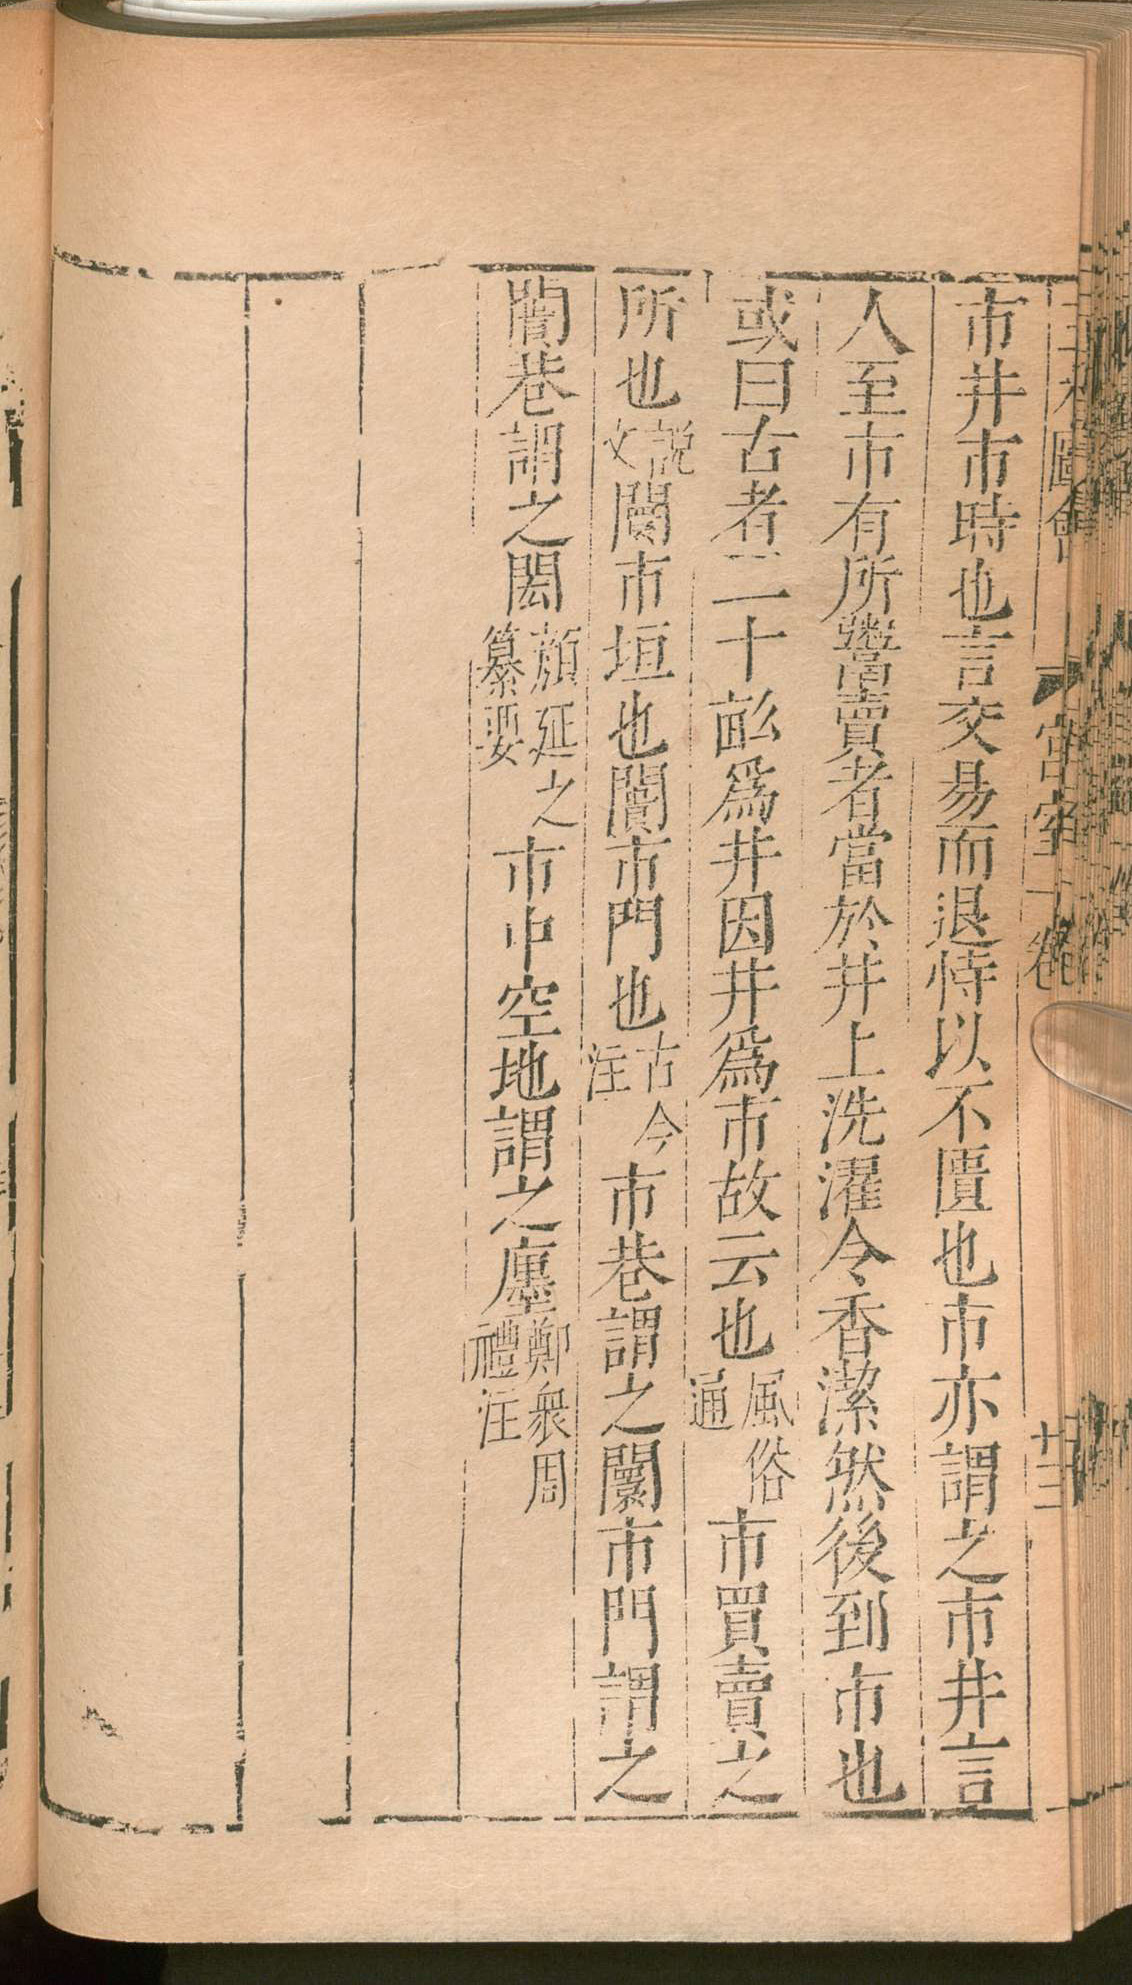 市井市時也言交易而退恃以不匱也市亦謂之市井言
人至市有所鬻賣者當於井上洗濯令香潔然後到市也
或曰古者二十畝為井因井為市故云也風俗通市買賣之
所也說文闤市垣也闠市門也古今注市巷謂之闤市門謂之
闠巷謂之閎顏延之纂要市中空地謂之廛鄭衆周禮注
圖會
宮室一卷
廿三